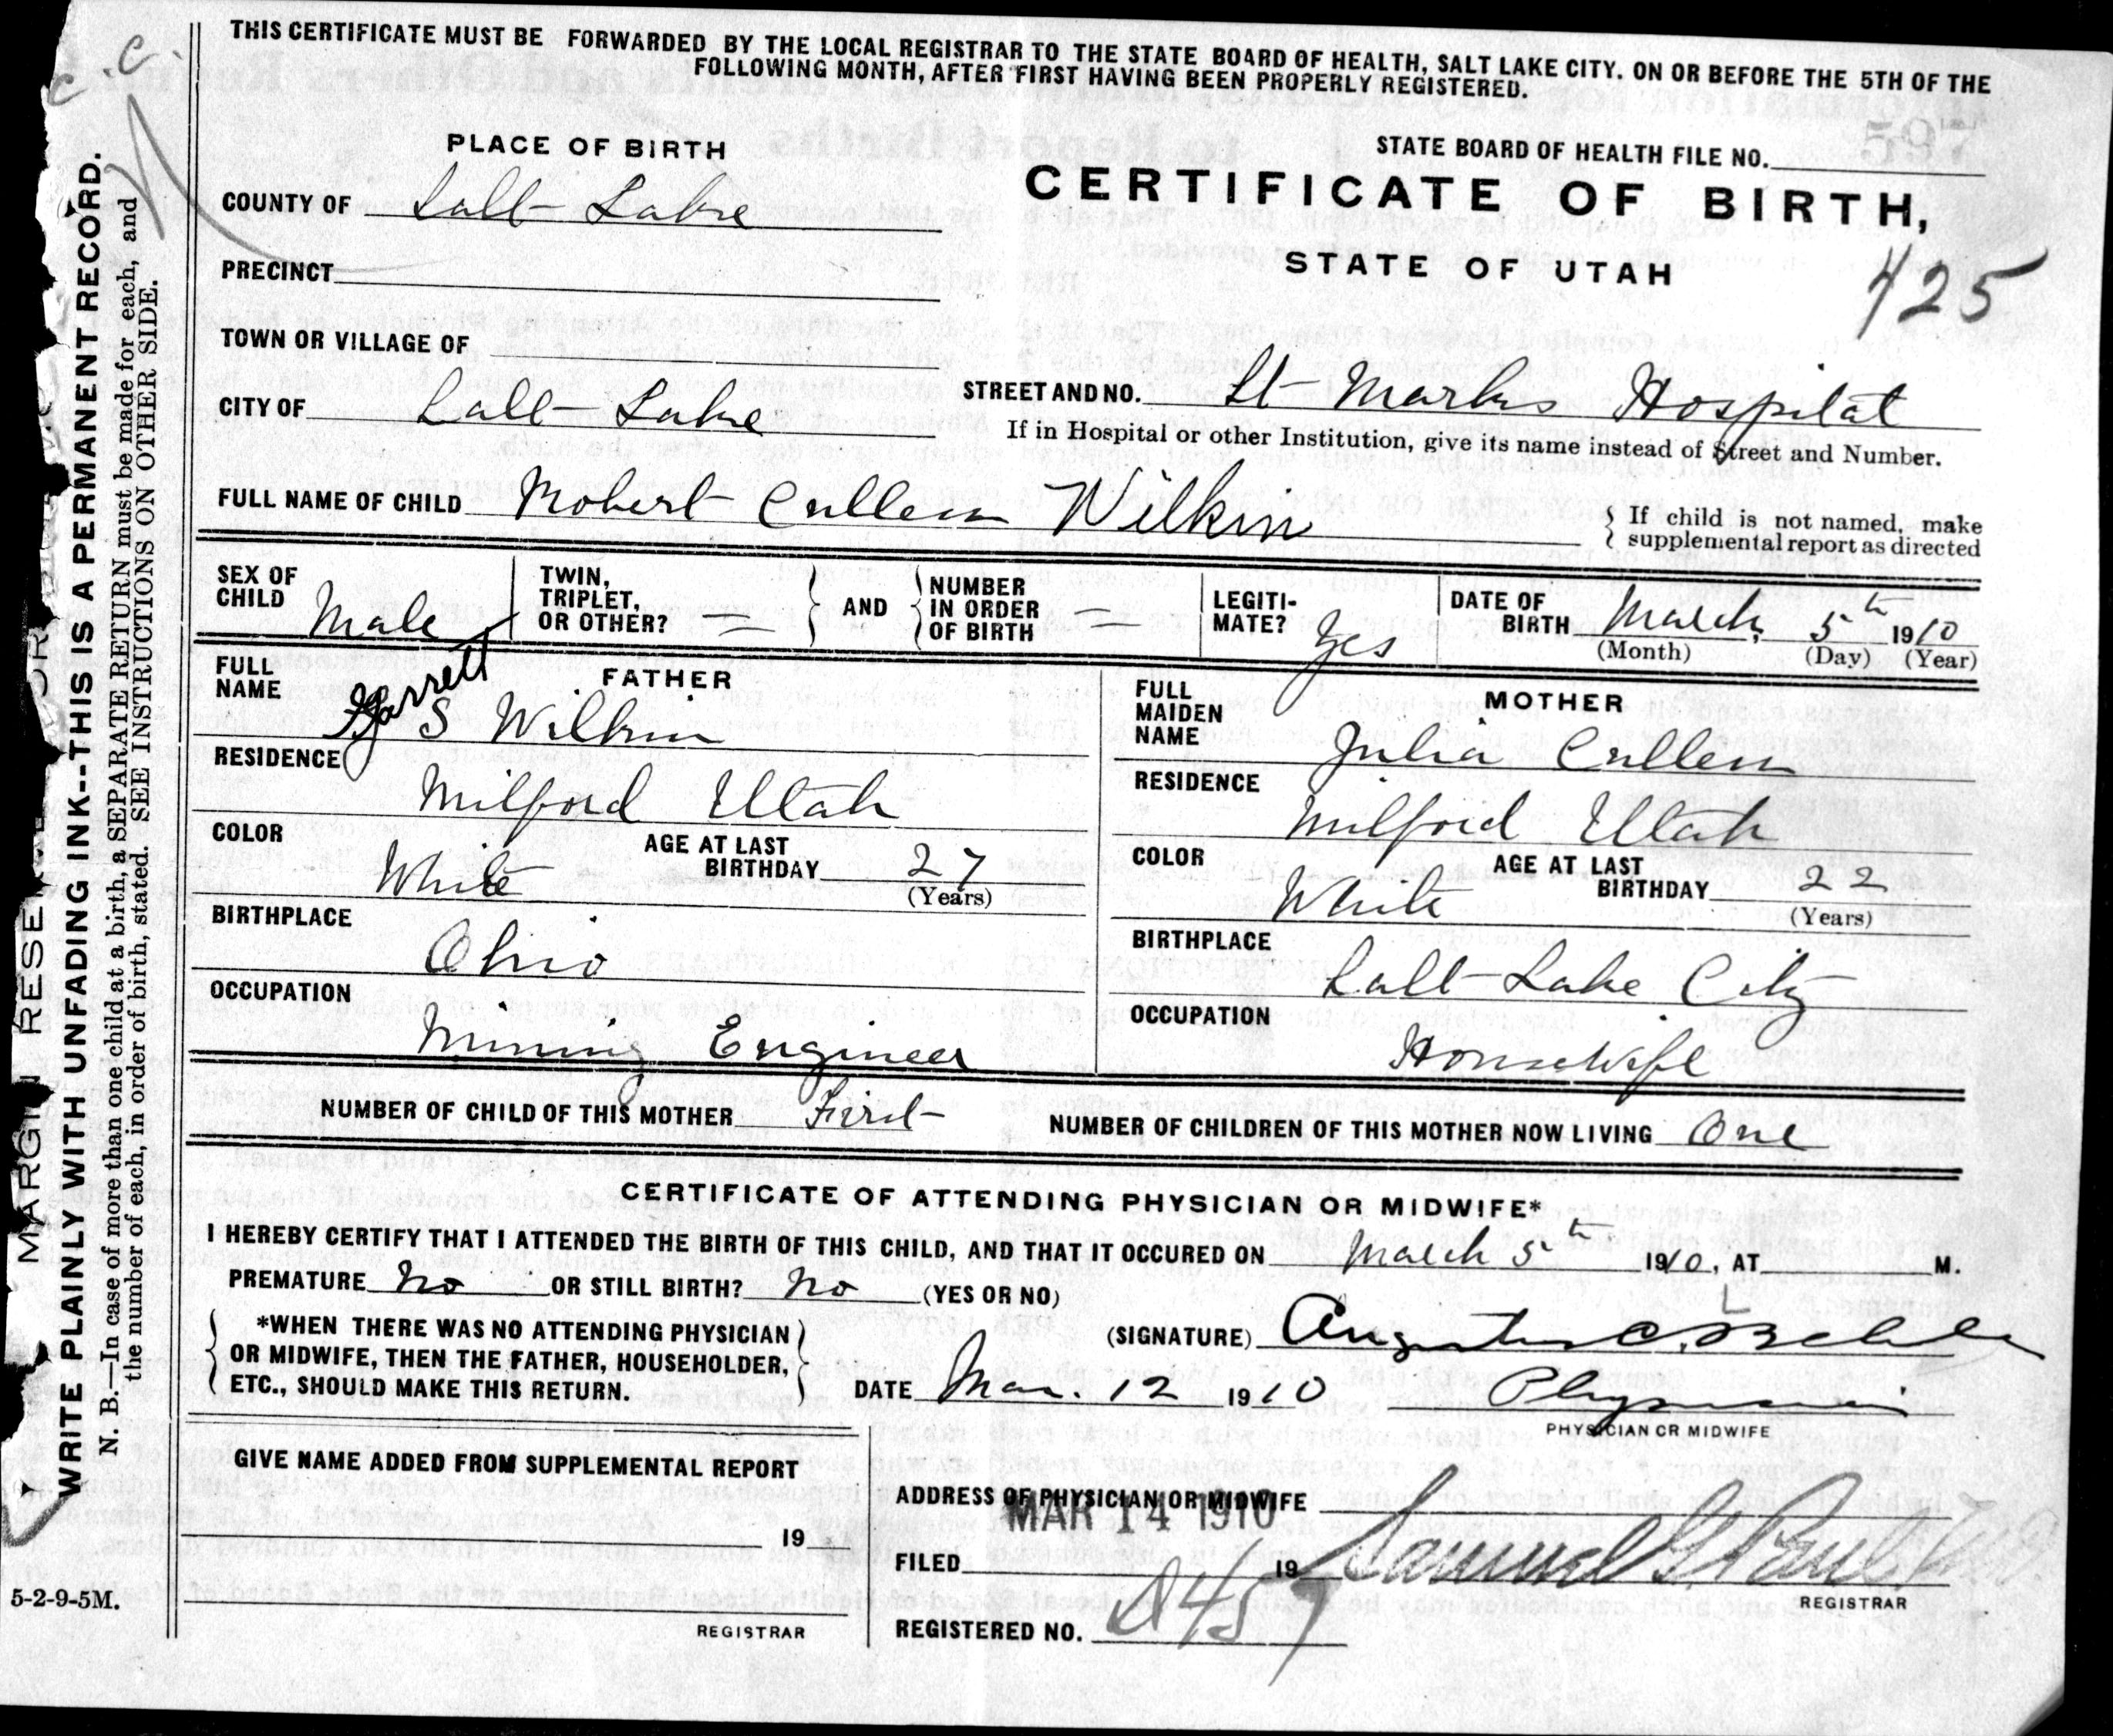 THIS CERTIFICATE MUST BE FORWARDED BY THE LOCAL REGISTRAR TO THE STATE BOARD OF HEALTH, SALT LAKE CITY. ON OR BEFORE THE 5TH OF THE
FOLLOWING MONTH, AFTER FIRST HAVING BEEN PROPERLY REGISTERED.
PLACE OF BIRTH
STATE BOARD OF HEALTH FILE NO. 597
COUNTY OF Salt Lake
CERTIFICATE OF BIRTH,
STATE OF UTAH
425
PRECINCT
TOWN OR VILLAGE OF
CITY OF Salt Lake
STREET AND NO. St Marks Hospital
If in Hospital or other Institution, give its name instead of Street and Number.
FULL NAME OF CHILD Robert Cullen Wilkin
If child is not named, make
supplemental report as directed
SEX OF CHILD Male
TWIN, TRIPLET, OR OTHER? —
AND
NUMBER IN ORDER OF BIRTH —
LEGITI-MATE? Yes
DATE OF BIRTH March 5th 1910
(Month) (Day) (Year)
FATHER
FULL NAME Garrett S Wilkin
RESIDENCE Milford Utah
COLOR White
AGE AT LAST BIRTHDAY 27
(Years)
BIRTHPLACE Ohio
OCCUPATION Mining Engineer
MOTHER
FULL MAIDEN NAME Julia Cullen
RESIDENCE Milford Utah
COLOR White
AGE AT LAST BIRTHDAY 22
(Years)
BIRTHPLACE Salt Lake City
OCCUPATION Housewife
NUMBER OF CHILD OF THIS MOTHER First
NUMBER OF CHILDREN OF THIS MOTHER NOW LIVING One
CERTIFICATE OF ATTENDING PHYSICIAN OR MIDWIFE*
I HEREBY CERTIFY THAT I ATTENDED THE BIRTH OF THIS CHILD, AND THAT IT OCCURED ON March 5th 1910, AT M.
PREMATURE No OR STILL BIRTH? No (YES OR NO)
*WHEN THERE WAS NO ATTENDING PHYSICIAN
OR MIDWIFE, THEN THE FATHER, HOUSEHOLDER,
ETC., SHOULD MAKE THIS RETURN.
(SIGNATURE) Augustus C. Behle
DATE Mar. 12 1910
Physician
PHYSICIAN OR MIDWIFE
GIVE NAME ADDED FROM SUPPLEMENTAL REPORT
19
REGISTRAR
ADDRESS OF PHYSICIAN OR MIDWIFE
MAR 14 1910
FILED 19
Samuel G. Paul
REGISTRAR
REGISTERED NO. A457
MARGIN RESE
WRITE PLAINLY WITH UNFADING INK--THIS IS A PERMANENT RECORD.
N. B.—In case of more than one child at a birth, a SEPARATE RETURN must be made for each, and
the number of each, in order of birth, stated. SEE INSTRUCTIONS ON OTHER SIDE.
5-2-9-5M.